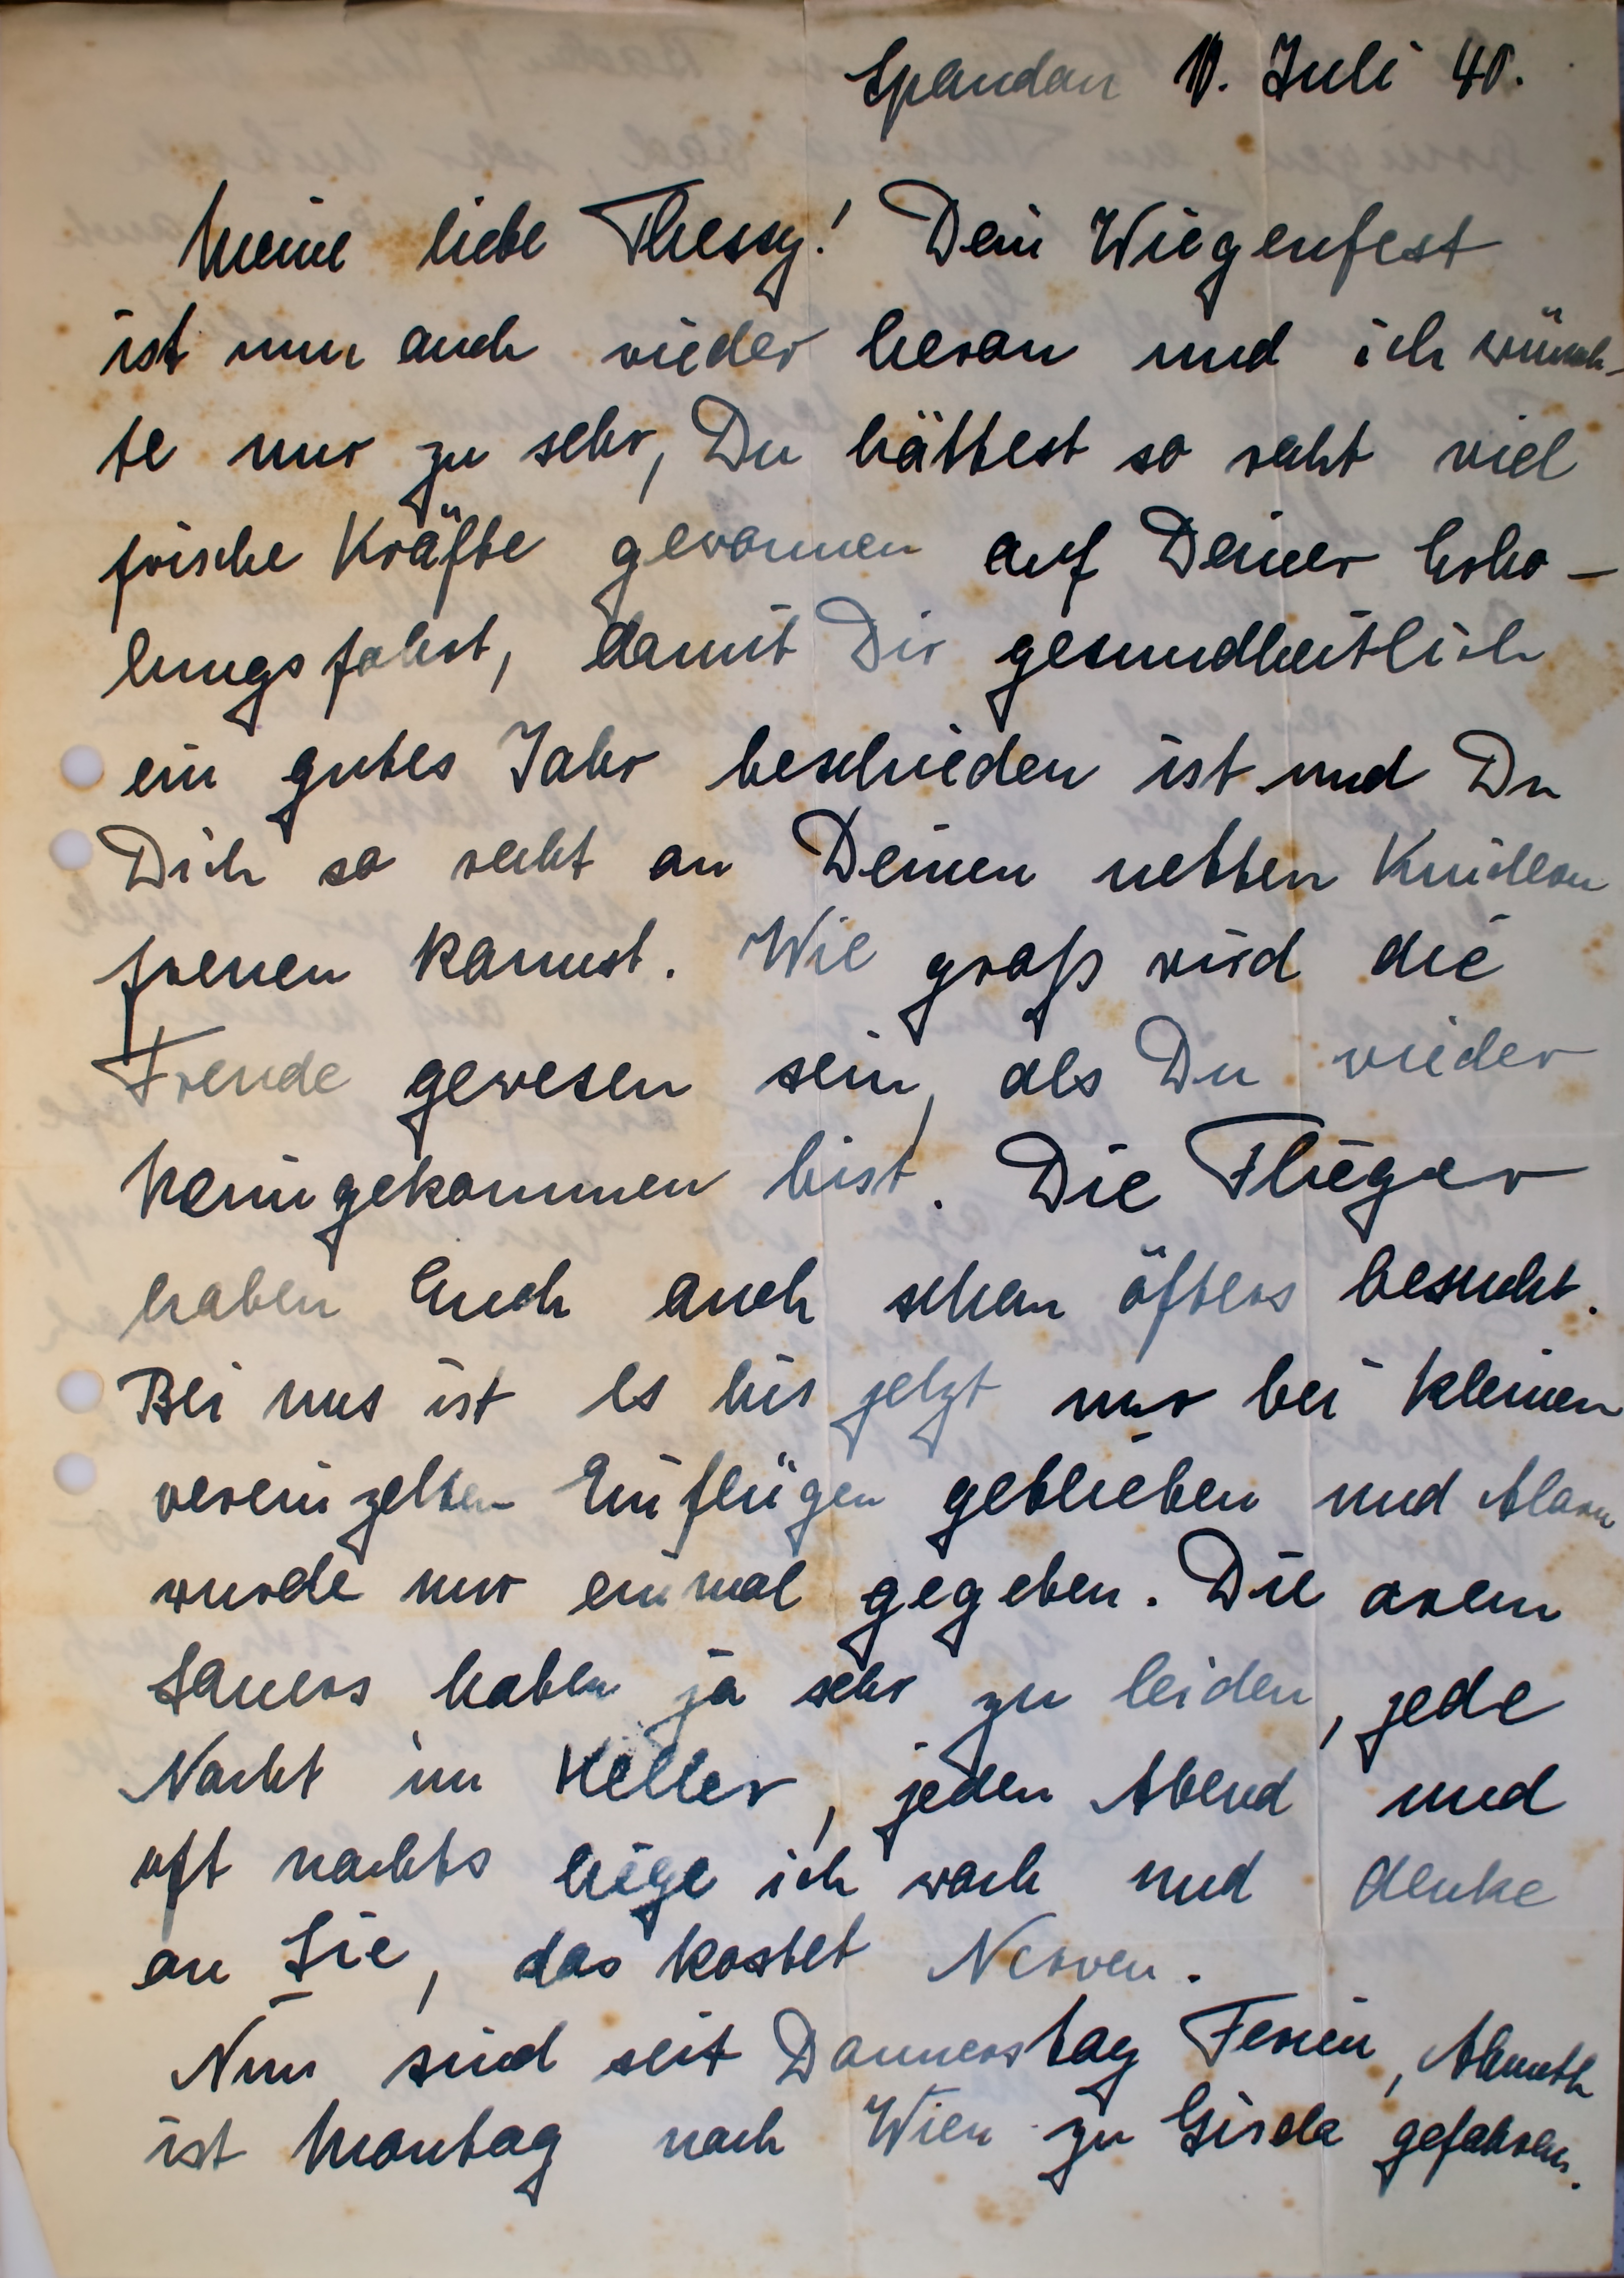 Spandau 10. Juli 40.
Meine liebe Thessy! Dein Wiegenfest
ist nun auch wieder heran und ich wünsch-
te nur zu sehr, Du hättest so recht viel
frische Kräfte gewonnen auf Deiner Erho-
lungsfahrt, damit Dir gesundheitlich
ein gutes Jahr beschieden ist und Du
Dich so recht an Deinen netten Kindern
freuen kannst. Wie groß wird die
Freude gewesen sein, als Du wieder
heimgekommen bist. Die Flieger
haben Euch auch schon öfters besucht.
Bei uns ist es bis jetzt nur bei kleinen
vereinzelten Einflügen geblieben und Alarm
wurde nur einmal gegeben. Die armen
haben ja sehr zu leiden, jede
Nacht im Keller, jeden Abend und
oft nachts liege ich wach und denke
an Sie, das kostet Nerven.
Nun sind seit Donnerstag Ferien, Almuth
ist Montag nach Wien zu Gisela gefahren.